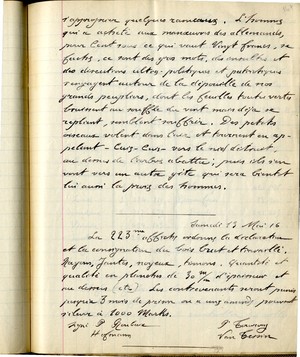 s'approprier quelques rameaux. L'homme
qui a acheté aux manœuvres des allemands,
pour cent sous ce qui vaut vingt francs, se
fâche, ce sont des gros mots, des insultes et
des discussions ultra-politiques et patriotiques
s'engagent autour de la dépouille de nos
grands peupliers, dont les feuilles toutes vertes
au souffle du vent mais déjà se
replient, semblent souffrir. Des petits
oiseaux volent dans l'air et tournent en ap-
pelant - Cuiz-Cuiz - vers le nid détruit,
au dessus de l'ombre abattue; puis s'en
vont vers un autre gîte qui sera bientôt
lui aussi la proie des hommes.
Samedi 13 Mai 16
La 223me affiche ordonne la déclaration
et la consignation du bois brut et travaillé.
Rayons, Jantes, noyeux, tenons. Quantité et
qualité en planches de 30 m/m d'épaisseur et
au dessus (etc). Les contrevenants seront punis
jusqu'à 3 mois de prison ou une amende pouvant
s'élever à 1000 Marks.
Signé P.
Hofmann